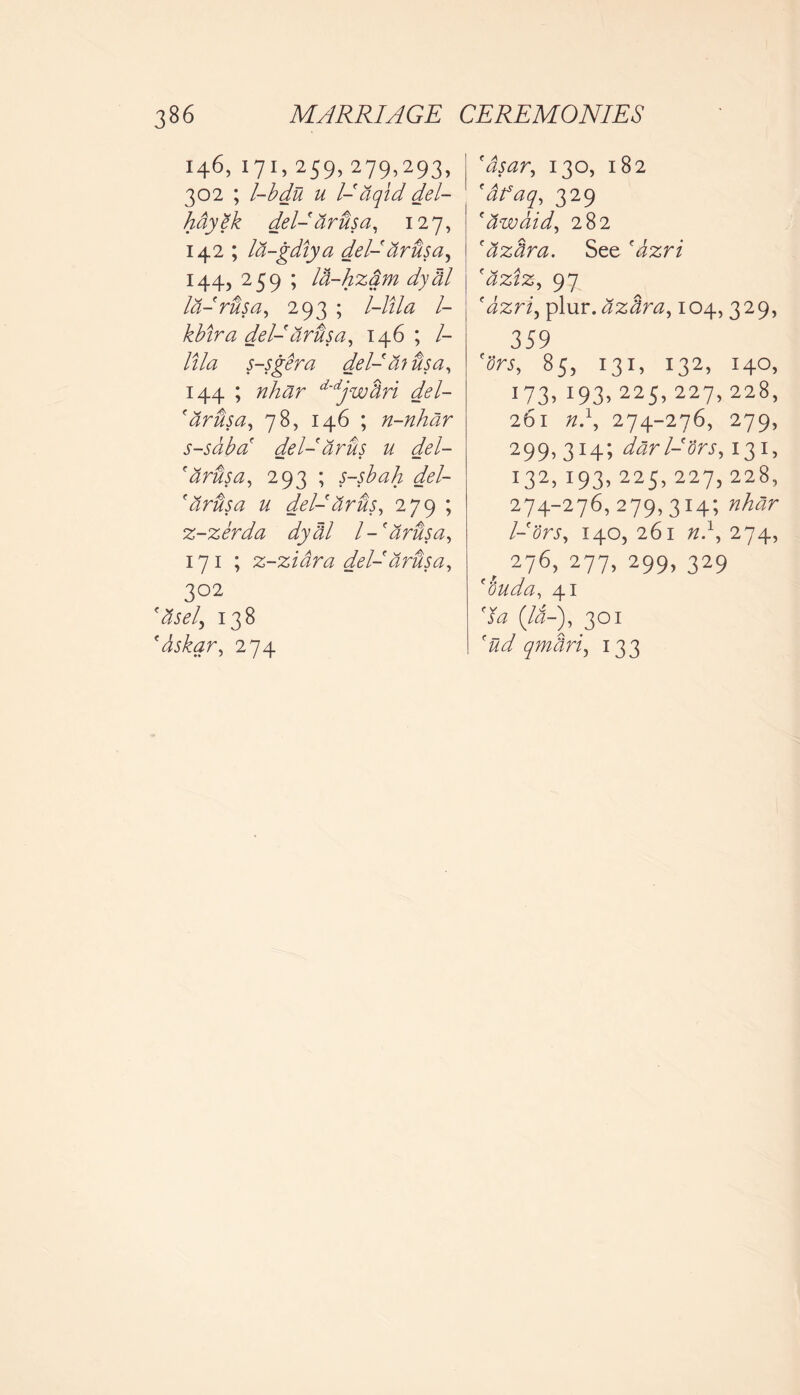 386 MARRIAGE CEREMONIES
146, 171, 259, 279, 293,
302 ; l-bḏū u l-ʿăqid ḏel-
háyĕk ḏel-ʿărūṣa, 127,
142 ; lă-gdīya ḏel-ʿărūṣa,
144, 259 ; lă-ḥzạm dyăl
lă-ʿrūṣa, 293 ; l-līla l-
kbīra ḏel-ʿărūṣa, 146 ; l-
līla ṣ-ṣgêra ḏel-ʿărūṣa,
144 ; nhār d-djwări ḏel-
ʿărūṣa, 78, 146 ; n-nhār
s-sábaʿ ḏel-ʿărūṣ u ḏel-
ʿărūṣa, 293 ; ṣ-ṣbaḥ ḏel-
ʿărūṣa u ḏel-ʿărūṣ, 279 ;
z-zérda dyăl l-ʿărūṣa,
171 ; z-ziâra ḏel-ʿărūṣa,
302
ʿăsel, 138
ʿáskạr, 274
ʿáṣar, 130, 182
ʿăṭʿaq, 329
ʿăwáid, 282
ʿăzăra. See ʿázri
ʿăzīz, 97
ʿázri, plur. ăzăra, 104, 329,
359
ʿŏrs, 85, 131, 132, 140,
173, 193, 225, 227, 228,
261 n.¹, 274-276, 279,
299, 314; dār l-ʿŏrs, 131,
132, 193, 225, 227, 228,
274-276, 279, 314; nhār
l-ʿŏrs, 140, 261 n.¹, 274,
276, 277, 299, 329
ʿŏuda, 41
ʿša (lă-), 301
ʿūd qmări, 133